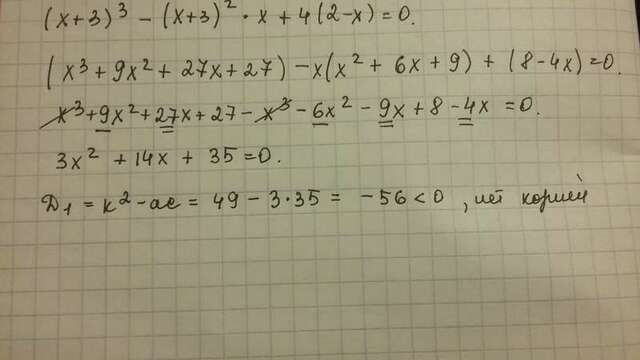 (x+3)³ - (x+3)² · x + 4(2-x) = 0.
(x³ + 9x² + 27x + 27) - x(x² + 6x + 9) + (8-4x) = 0.
x³ + 9x² + 27x + 27 - x³ - 6x² - 9x + 8 - 4x = 0.
3x² + 14x + 35 = 0.
D₁ = k² - ac = 49 - 3·35 = -56 < 0, нет корней